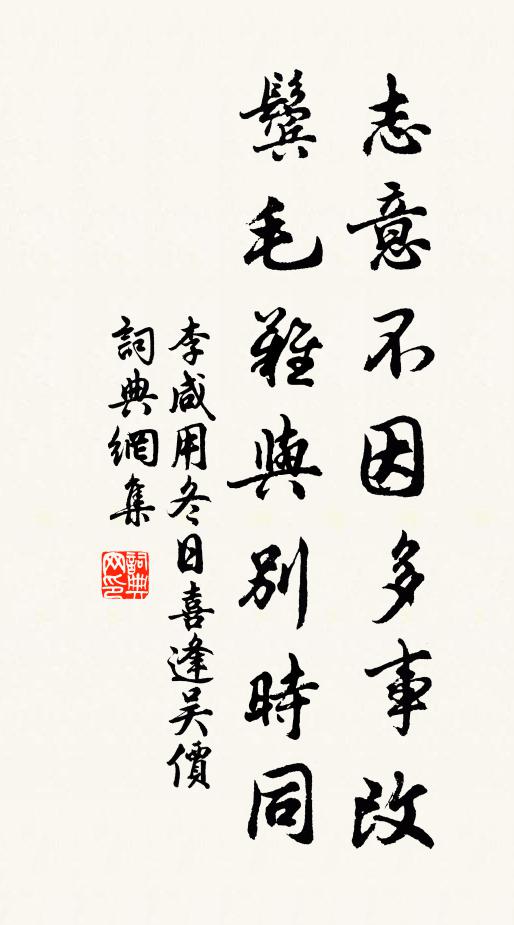 志意不因多事改
鬢毛難與別時同
李咸用冬日喜逢吴價
詞典網集
詞典网印